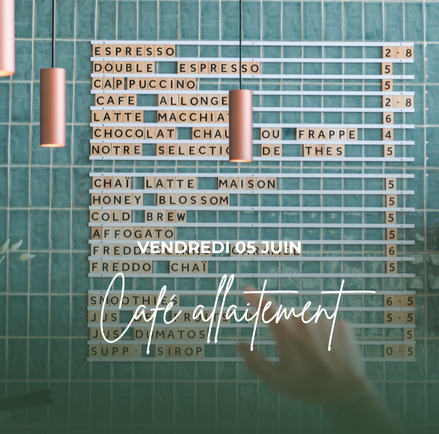 ESPRESSO 2·8
DOUBLE ESPRESSO 5
CAPPUCCINO 5
CAFE ALLONGE 2·8
LATTE MACCHIA 6
CHOCOLAT CHAU OU FRAPPE 4
NOTRE SELECTIO DE THES 5
CHAÏ LATTE MAISON 5
HONEY BLOSSOM 5
COLD BREW 5
AFFOGATO 5
VENDREDI 05 JUIN
FREDDO 6
FREDDO CHAÏ 5
Café allaitement
SMOOTHIES 6·5
JUS 5·5
JUS DUMATOS 5
SUPP· SIROP 0·5